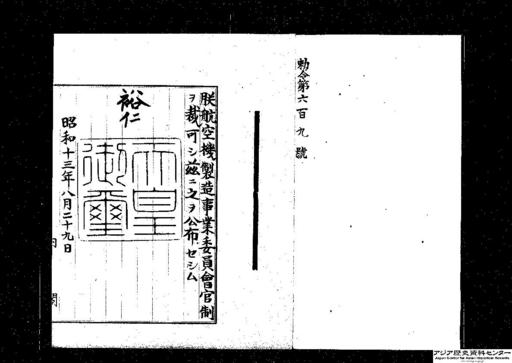 勅令第六百九號
朕航空機製造事業委員會官制
ヲ裁可シ茲ニ之ヲ公布セシム
裕仁
天皇御璽
昭和十三年八月二十九日
内閣
アジア歴史資料センター
Japan Center for Asian Historical Records